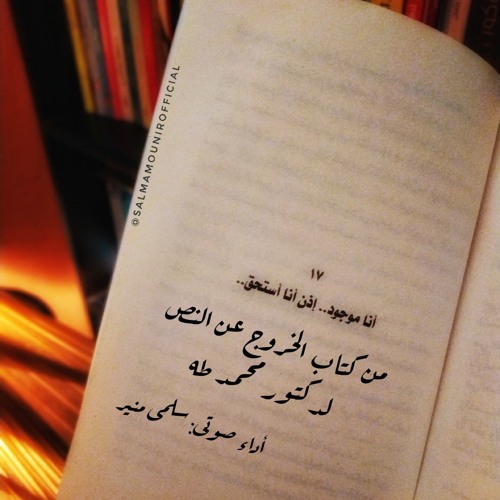 @SALMAMOUNIROFFICIAL
١٧
أنا موجود.. إذن أنا أستحق..
من كتاب الخروج عن النص
لدكتور محمد طه
أداء صوتي: سلمى منير